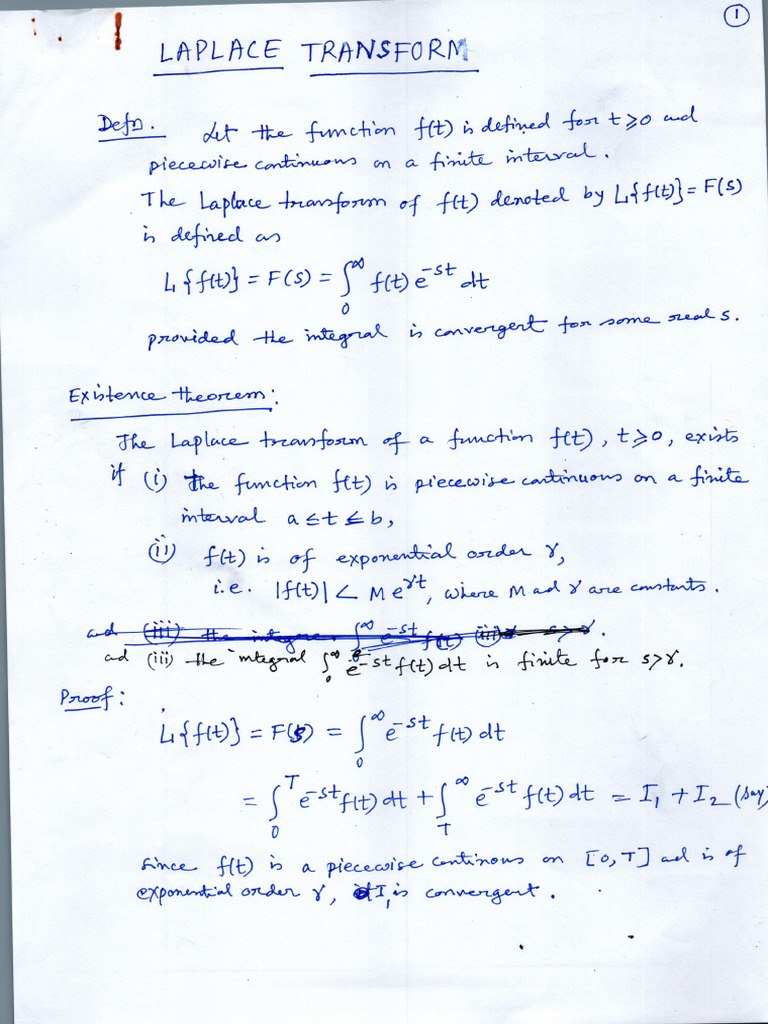 1
LAPLACE TRANSFORM
Defn. Let the function f(t) is defined for t ⩾ 0 and
piecewise continuous on a finite interval.
The Laplace transform of f(t) denoted by L{f(t)} = F(s)
is defined as
L{f(t)} = F(s) = ∫₀^∞ f(t) e^{-st} dt
provided the integral is convergent for some real s.
Existence theorem:
The Laplace transform of a function f(t), t ⩾ 0, exists
if (i) the function f(t) is piecewise continuous on a finite
interval a ≤ t ≤ b,
(ii) f(t) is of exponential order γ,
i.e. |f(t)| < M e^{γt}, where M ad γ are constants.
and (iii) the integra ∫₀^∞ e^{-st} f(t) s>γ.
ad (iii) the integral ∫₀^∞ e^{-st} f(t) dt is finite for s>γ.
Proof:
L{f(t)} = F(s) = ∫₀^∞ e^{-st} f(t) dt
= ∫₀^T e^{-st} f(t) dt + ∫_T^∞ e^{-st} f(t) dt = I₁ + I₂ (say)
Since f(t) is a piecewise continous on [0,T] ad is of
exponential order γ, I₁ is convergent.